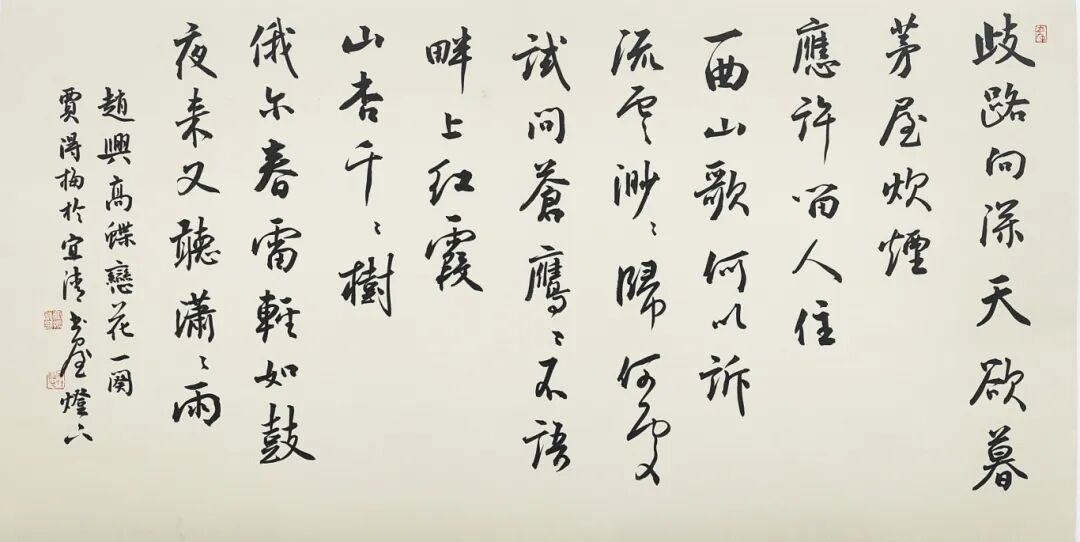 歧路向深天欲暮
茅屋炊煙
應許留人住
一曲山歌何以訴
流雲渺渺歸何處
試問蒼鷹鷹不語
畔上紅霞
山杏千千樹
俄尔春雷輕如鼓
夜來又聽瀟瀟雨
趙興高蝶戀花一闋
賈得梅於宜清書屋燈下